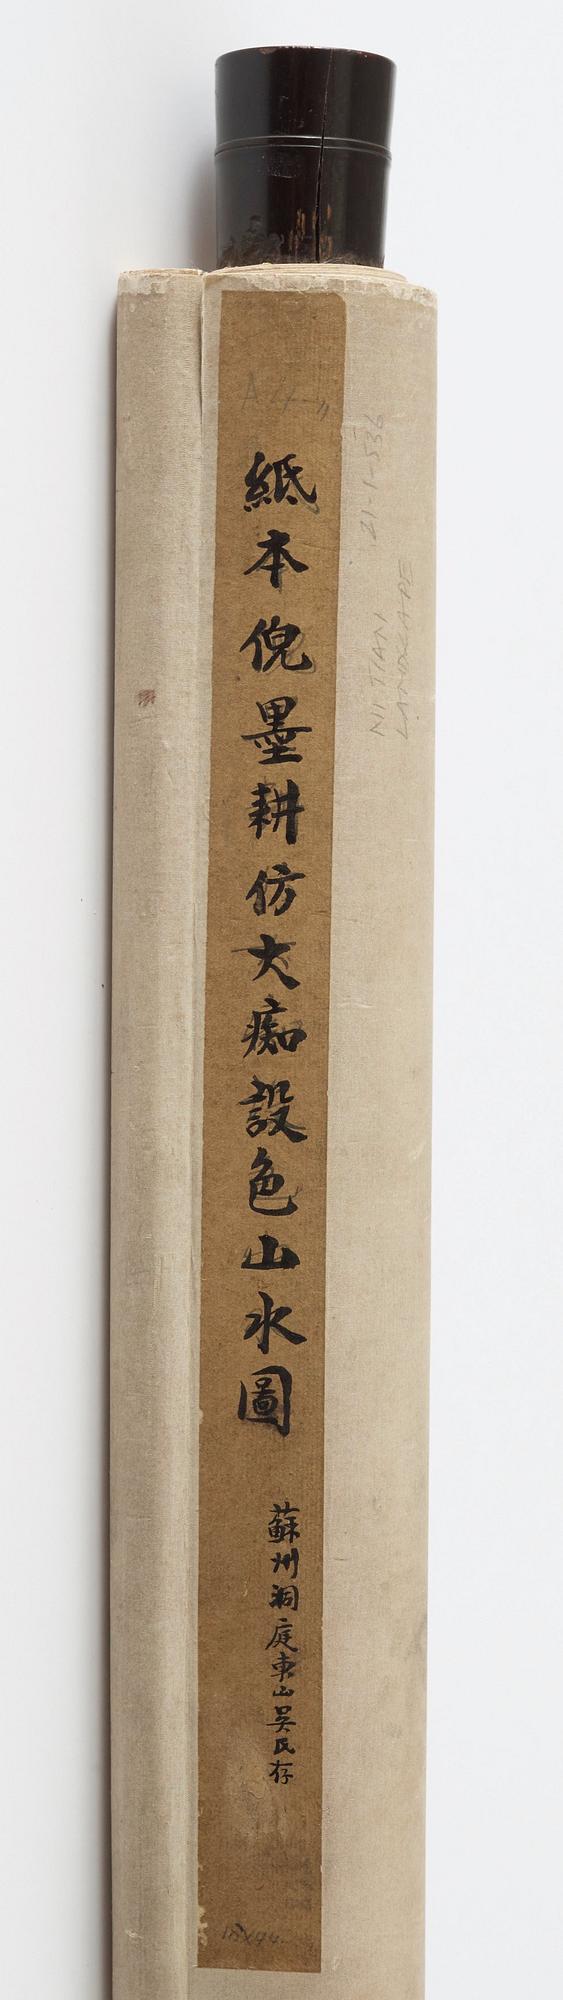 A4"
紙本倪墨耕仿大癡設色山水圖
蘇州洞庭東山吳氏存
18x44
21-1-536
NI TIAN
LANDSCAPE